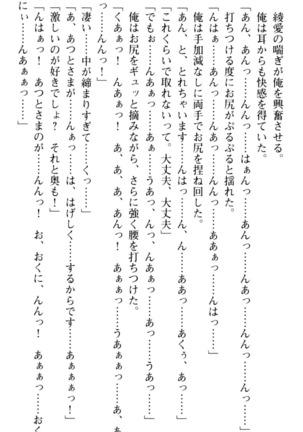 「あん、あんっ……んんっ……はぁんっ……あんっ……んんっ……んっ……」
　綾愛の喘ぎが俺を興奮させる。
　俺は耳からも快感を得ていた。
「あんっ、あんっ……んっ……んんっ……あんっ……んんっ……んんっ……」
　打ちつける度にお尻がぷるぷると揺れた。
「んはっ……あんっ……んんっ……んんっ……ああっ……んっ……んはっ……」
　俺は手加減なしに両手でお尻を捏ね回した。
「あん、と、とれちゃいます……んはっ……ん、ん……ああっ……あくぅ、あっ……」
「これくらいで取れないって。大丈夫、大丈夫」
「でもぉ……んあっ……あぁっ……うあっ、んっ……あつっ……うあっ……」
　俺はお尻をギュッと摘みながら、さらに強く腰を打ちつけた。
「くあぁっ……んんっ！　あ、あ、あ、あんっ！　あぁぁっ……うあぁぁっ……あ、あ、
……んんっ！」
「凄い……中が締まりすぎて……くっ……」
「あ、あつとさまが……んぁっ……は、はげしく……するからです……」
「激しいのが好きでしょ？　それと奥も！」
「んはぁっ！　あつとさまのが……んんっ！　お、おくに、んんっ！　あぁぁっ……おく
にぃ……んあぁぁっ……」